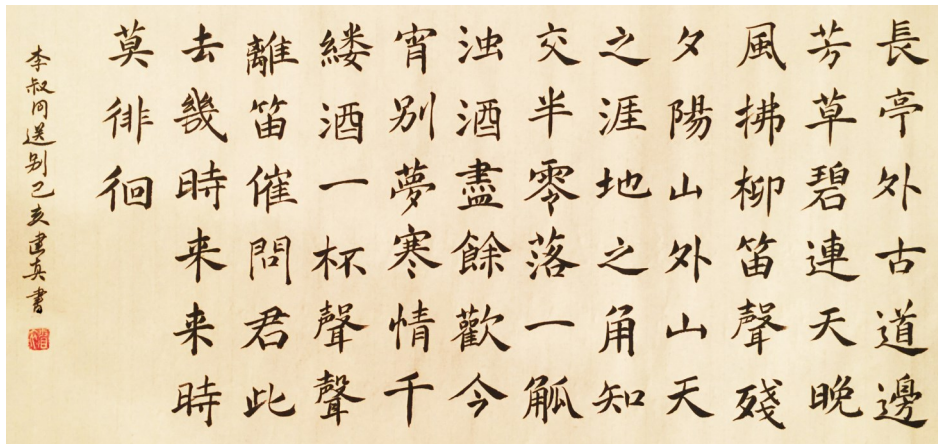 長亭外古道邊
芳草碧連天晚
風拂柳笛聲殘
夕陽山外山天
之涯地之角知
交半零落一觚
浊酒盡餘歡今
宵别夢寒情千
縷酒一杯聲聲
離笛催問君此
去幾時来来時
莫徘徊
李叔同送别己亥建真書